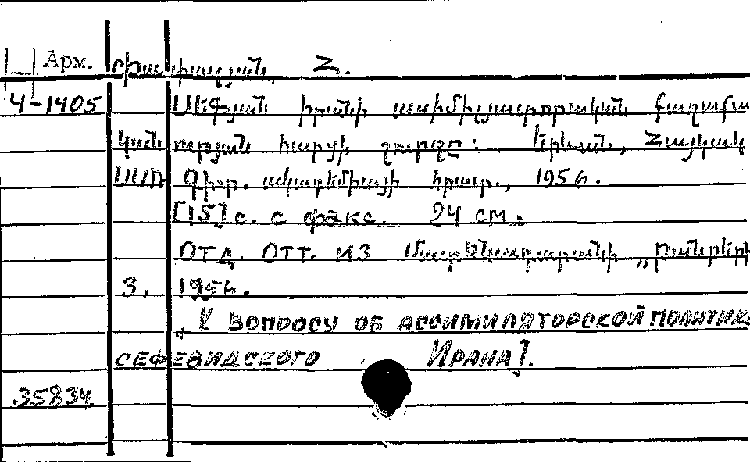 Арм. Փափազյան, Հ.
4-1405 Սեֆյան Իրանի ասիմիլյատորական քաղաքա
կան հարցի շուրջը: Երևան, Հայկական
ՍՍՌ Գիտ. ակադեմիայի հրատ., 1956.
[15] с. с факс. 24 см.
ОТД. ОТТ. ИЗ Մատենադարանի „Բանբերի
3, 1956.
[К ВОПРОСУ ОБ АССИМИЛЯТОРСКОЙ ПОЛИТИКЕ
СЕФЕВИДСКОГО ИРАНА].
35834